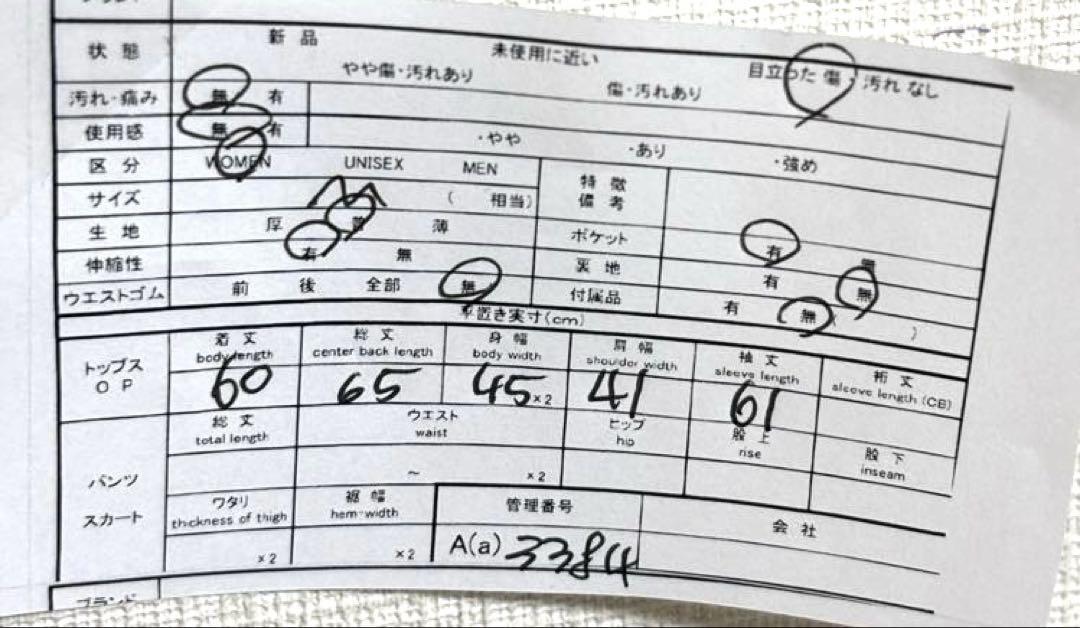 状態 新品 未使用に近い 目立った傷・汚れなし
やや傷・汚れあり 傷・汚れあり
汚れ・痛み 無 有
使用感 無 有 ・やや ・あり ・強め
区分 WOMEN UNISEX MEN 特徴
備考
サイズ M ( 相当)
生地 厚 普 薄 ポケット 有 無
伸縮性 有 無 裏地 有 無
ウエストゴム 前 後 全部 無 付属品 有 無( )
平置き実寸(cm)
トップス
OP
着丈 総丈 身幅 肩幅 袖丈 裄丈
body length center back length body width shoulder width sleeve length sleeve length (CB)
60 65 45×2 41 61
パンツ
スカート
総丈 ウエスト ヒップ 股上 股下
total length waist hip rise inseam
~ ×2
ワタリ 裾幅 管理番号 会社
thickness of thigh hem-width
×2 ×2 A(a) 3384
ブランド